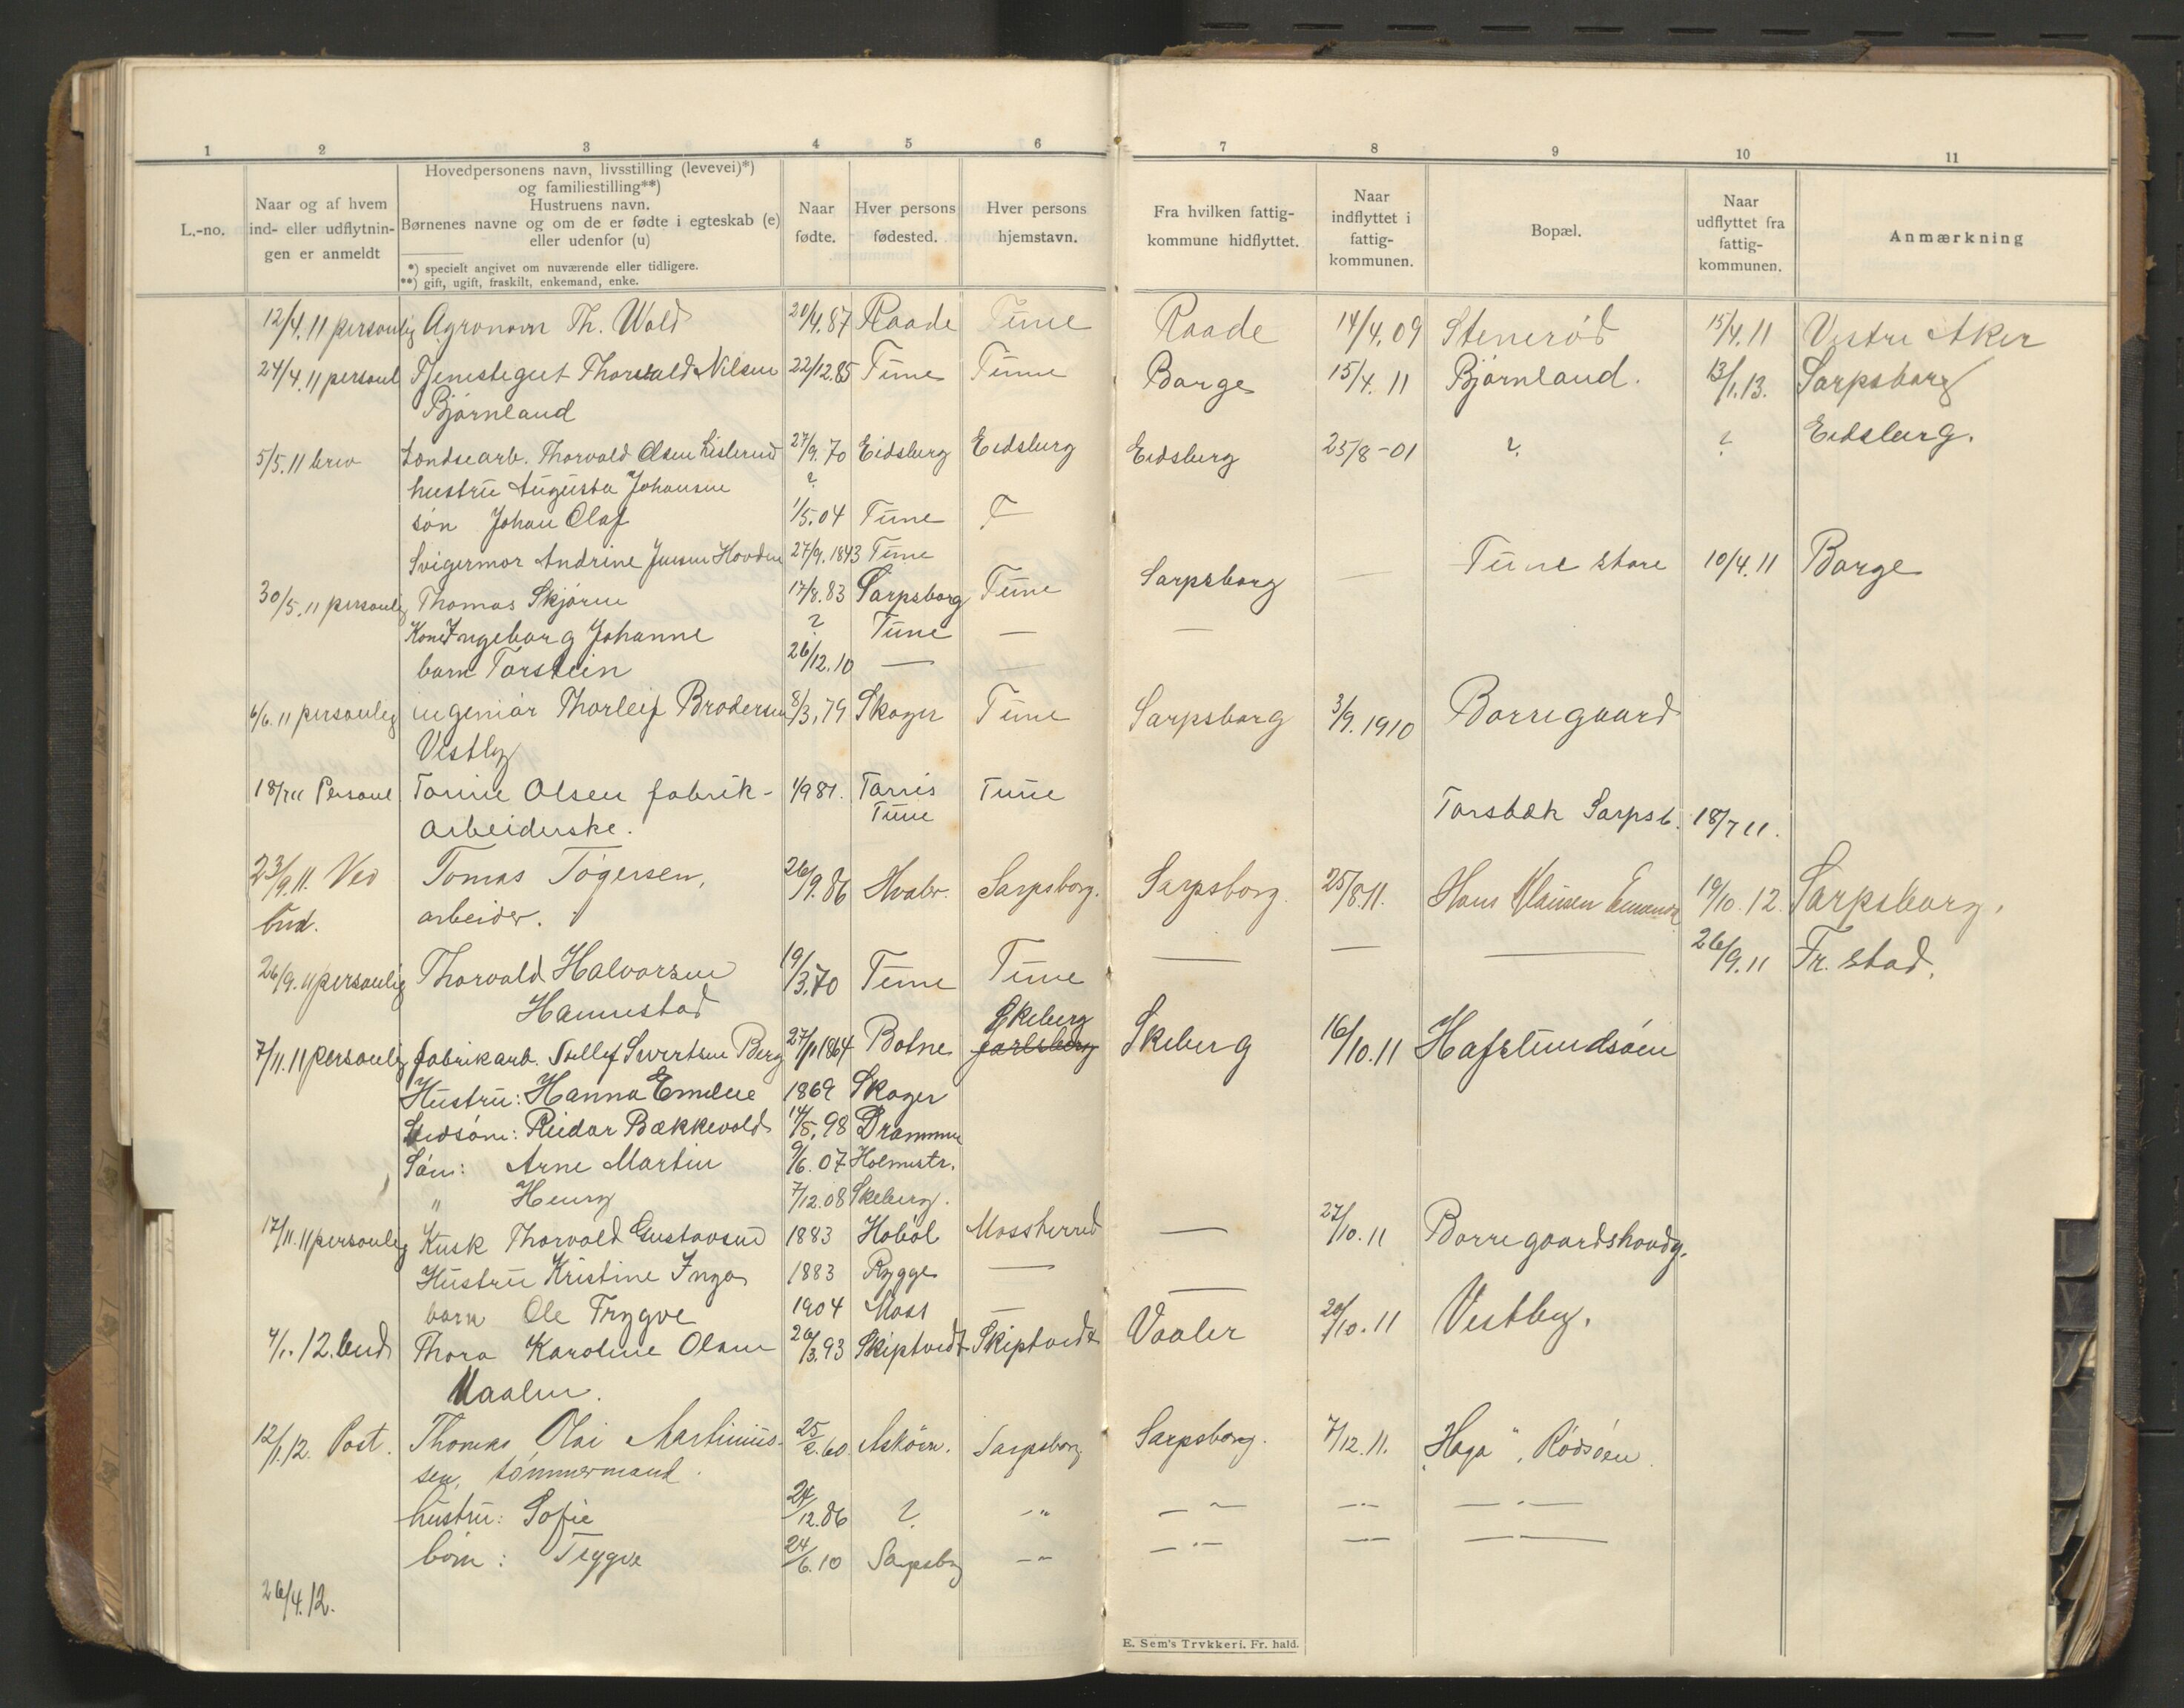 1 2 3 4 5 6 7 8 9 10 11
L.-no.
Naar og af hvem
ind- eller udflytnin-
gen er anmeldt
Hovedpersonens navn, livsstilling (levevei)*)
og familiestilling**)
Hustruens navn.
Børnenes navne og om de er fødte i egteskab (e)
eller udenfor (u)
*) specielt angivet om nuværende eller tidligere.
**) gift, ugift, fraskilt, enkemand, enke.
Naar
fødte.
Hver persons
fødested.
Hver persons
hjemstavn.
Fra hvilken fattig-
kommune hidflyttet.
Naar
indflyttet i
fattig-
kommunen.
Bopæl.
Naar
udflyttet fra
fattig-
kommunen.
Anmærkning
12/4.11 personlig Agronom Th. Wold 20/4.87 Raade Tune Raade 14/4.09 Stenerød 15/4.11 Vestre Aker
24/4.11 personl Tjenestegut Thorvald Nilsen 22/12.85 Tune Tune Borge 15/4.11 Bjørnland. 13/1.13. Sarpsborg
Bjørnland
5/5.11 brev Landsearb. Thorvald Olsen Lislerud 27/9.70 Eidsberg Eidsberg Eidsberg 25/8-01 ? ? Eidsberg.
hustru Augusta Johansen ?
søn Johan Olaf 1/5.04 Tune
Svigermor Andrine Jensen Hovden 27/9.1843 Tune
30/5.11 personlig Thomas Skjøren 17/8.83 Sarpsborg Tune Sarpsborg — Tune store 10/4.11 Borge
Kone Ingeborg Johanne ? Tune — —
barn Torstein 26/12.10 — —
6/6.11 personlig ingeniør Thorleif Brodersen 8/3.79 Skoger Tune Sarpsborg 3/9.1910 Borregaard
Vestby
18/7 11 Personl. Torine Olsen fabrik- 1/9 81. Torris Tune Torsbæk Sarpsb. 18/7 11.
arbeiderske. Tune
23/9.11. Ved Tomas Tøgersen, 26/9.86 Hvaler. Sarpsborg. Sarpsborg. 25/8.11. Hans Klausen 19/10.12. Sarpsborg.
bud. arbeider.
26/9.11 personlig Thorvald Halvorsen 19/3.70 Tune Tune — — — 26/9.11 Fr. stad.
Hannestad
7/11.11 personlig fabrikarb. Tollef Sivertsen Berg 27/11 1864 Botne Jarlsberg Skeberg Skeberg 16/10.11 Hafslundsøen
Hustru: Hanna Emelie 1869 Skoger
Stedsøn: Reidar Bækkevold 14/5.98 Drammen
Søn: Arne Martin 9/6.07 Holmestr.
" Henry 7/12.08 Skeberg.
17/11.11 personlig Kusk Thorvald Gustavsen 1883 Hobøl Mossherred — 27/10.11 Borregaardshovdg.
Hustru Kristine Inga 1883 Rygge — —
barn Ole Trygve 1904 Moss —
4/1.12. bud Thora Karoline Olsen 26/3.93 Skiptvedt Skiptvedt Vaaler 20/10.11 Vestby.
Vaaler.
12/1.12. Post. Thomas Olai Martinius- 25/2.60. Askøen. Sarpsborg Sarpsborg. 7/12.11. "Haga", Rødsøen.
sen, tømmermand.
hustru: Sofie 24/12.86 ? -"- -"- -"- -"-
børn: Trygve 24/6.10 Sarpsbg -"- -"- -"- -"-
26/4.12.
E. Sem's Trykkeri. Fr. hald.